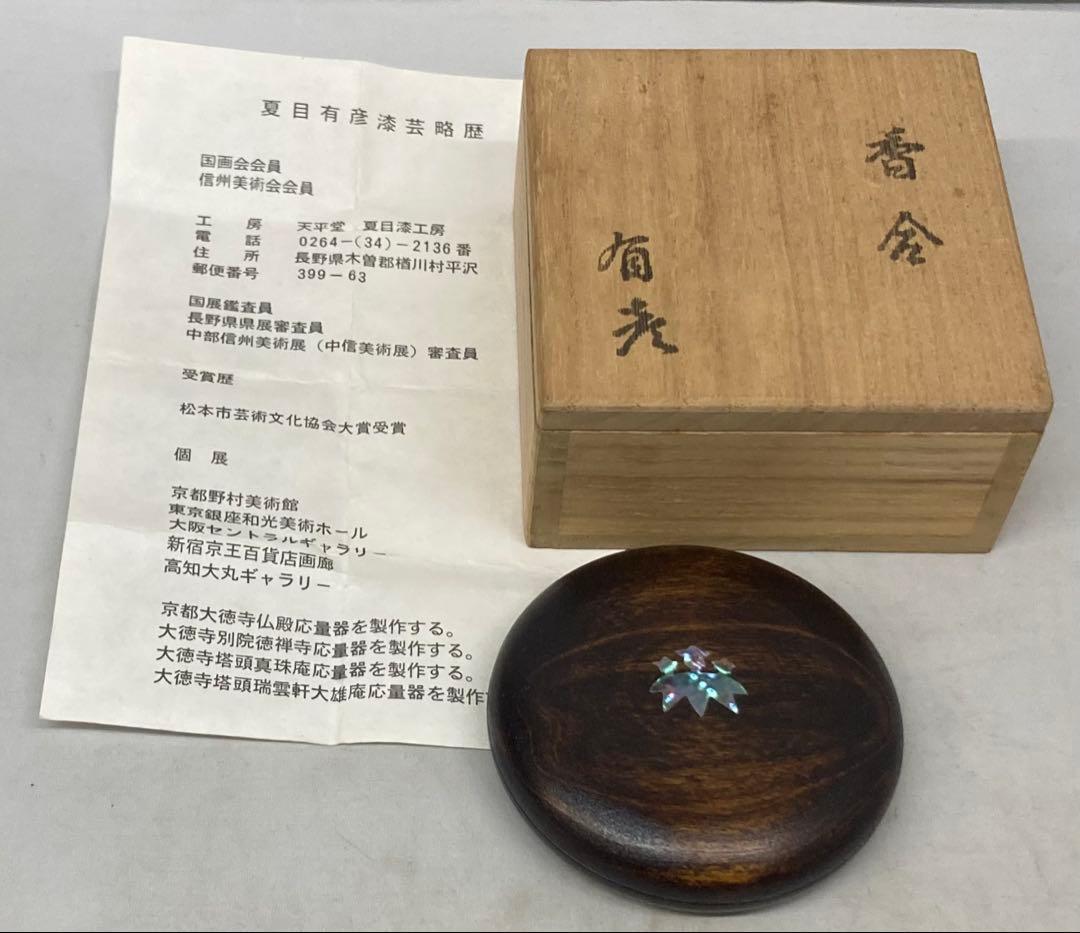 夏目有彦漆芸略歴
国画会会員
信州美術会会員
工房 天平堂 夏目漆工房
電話 0264-(34)-2136番
住所 長野県木曽郡楢川村平沢
郵便番号 399-63
国展鑑査員
長野県県展審査員
中部信州美術展(中信美術展)審査員
受賞歴
松本市芸術文化協会大賞受賞
個展
京都野村美術館
東京銀座和光美術ホール
大阪セントラルギャラリー
新宿京王百貨店画廊
高知大丸ギャラリー
京都大徳寺仏殿応量器を製作する。
大徳寺別院徳禅寺応量器を製作する。
大徳寺塔頭真珠庵応量器を製作する。
大徳寺塔頭瑞雲軒大雄庵応量器を製作
香合
有彦